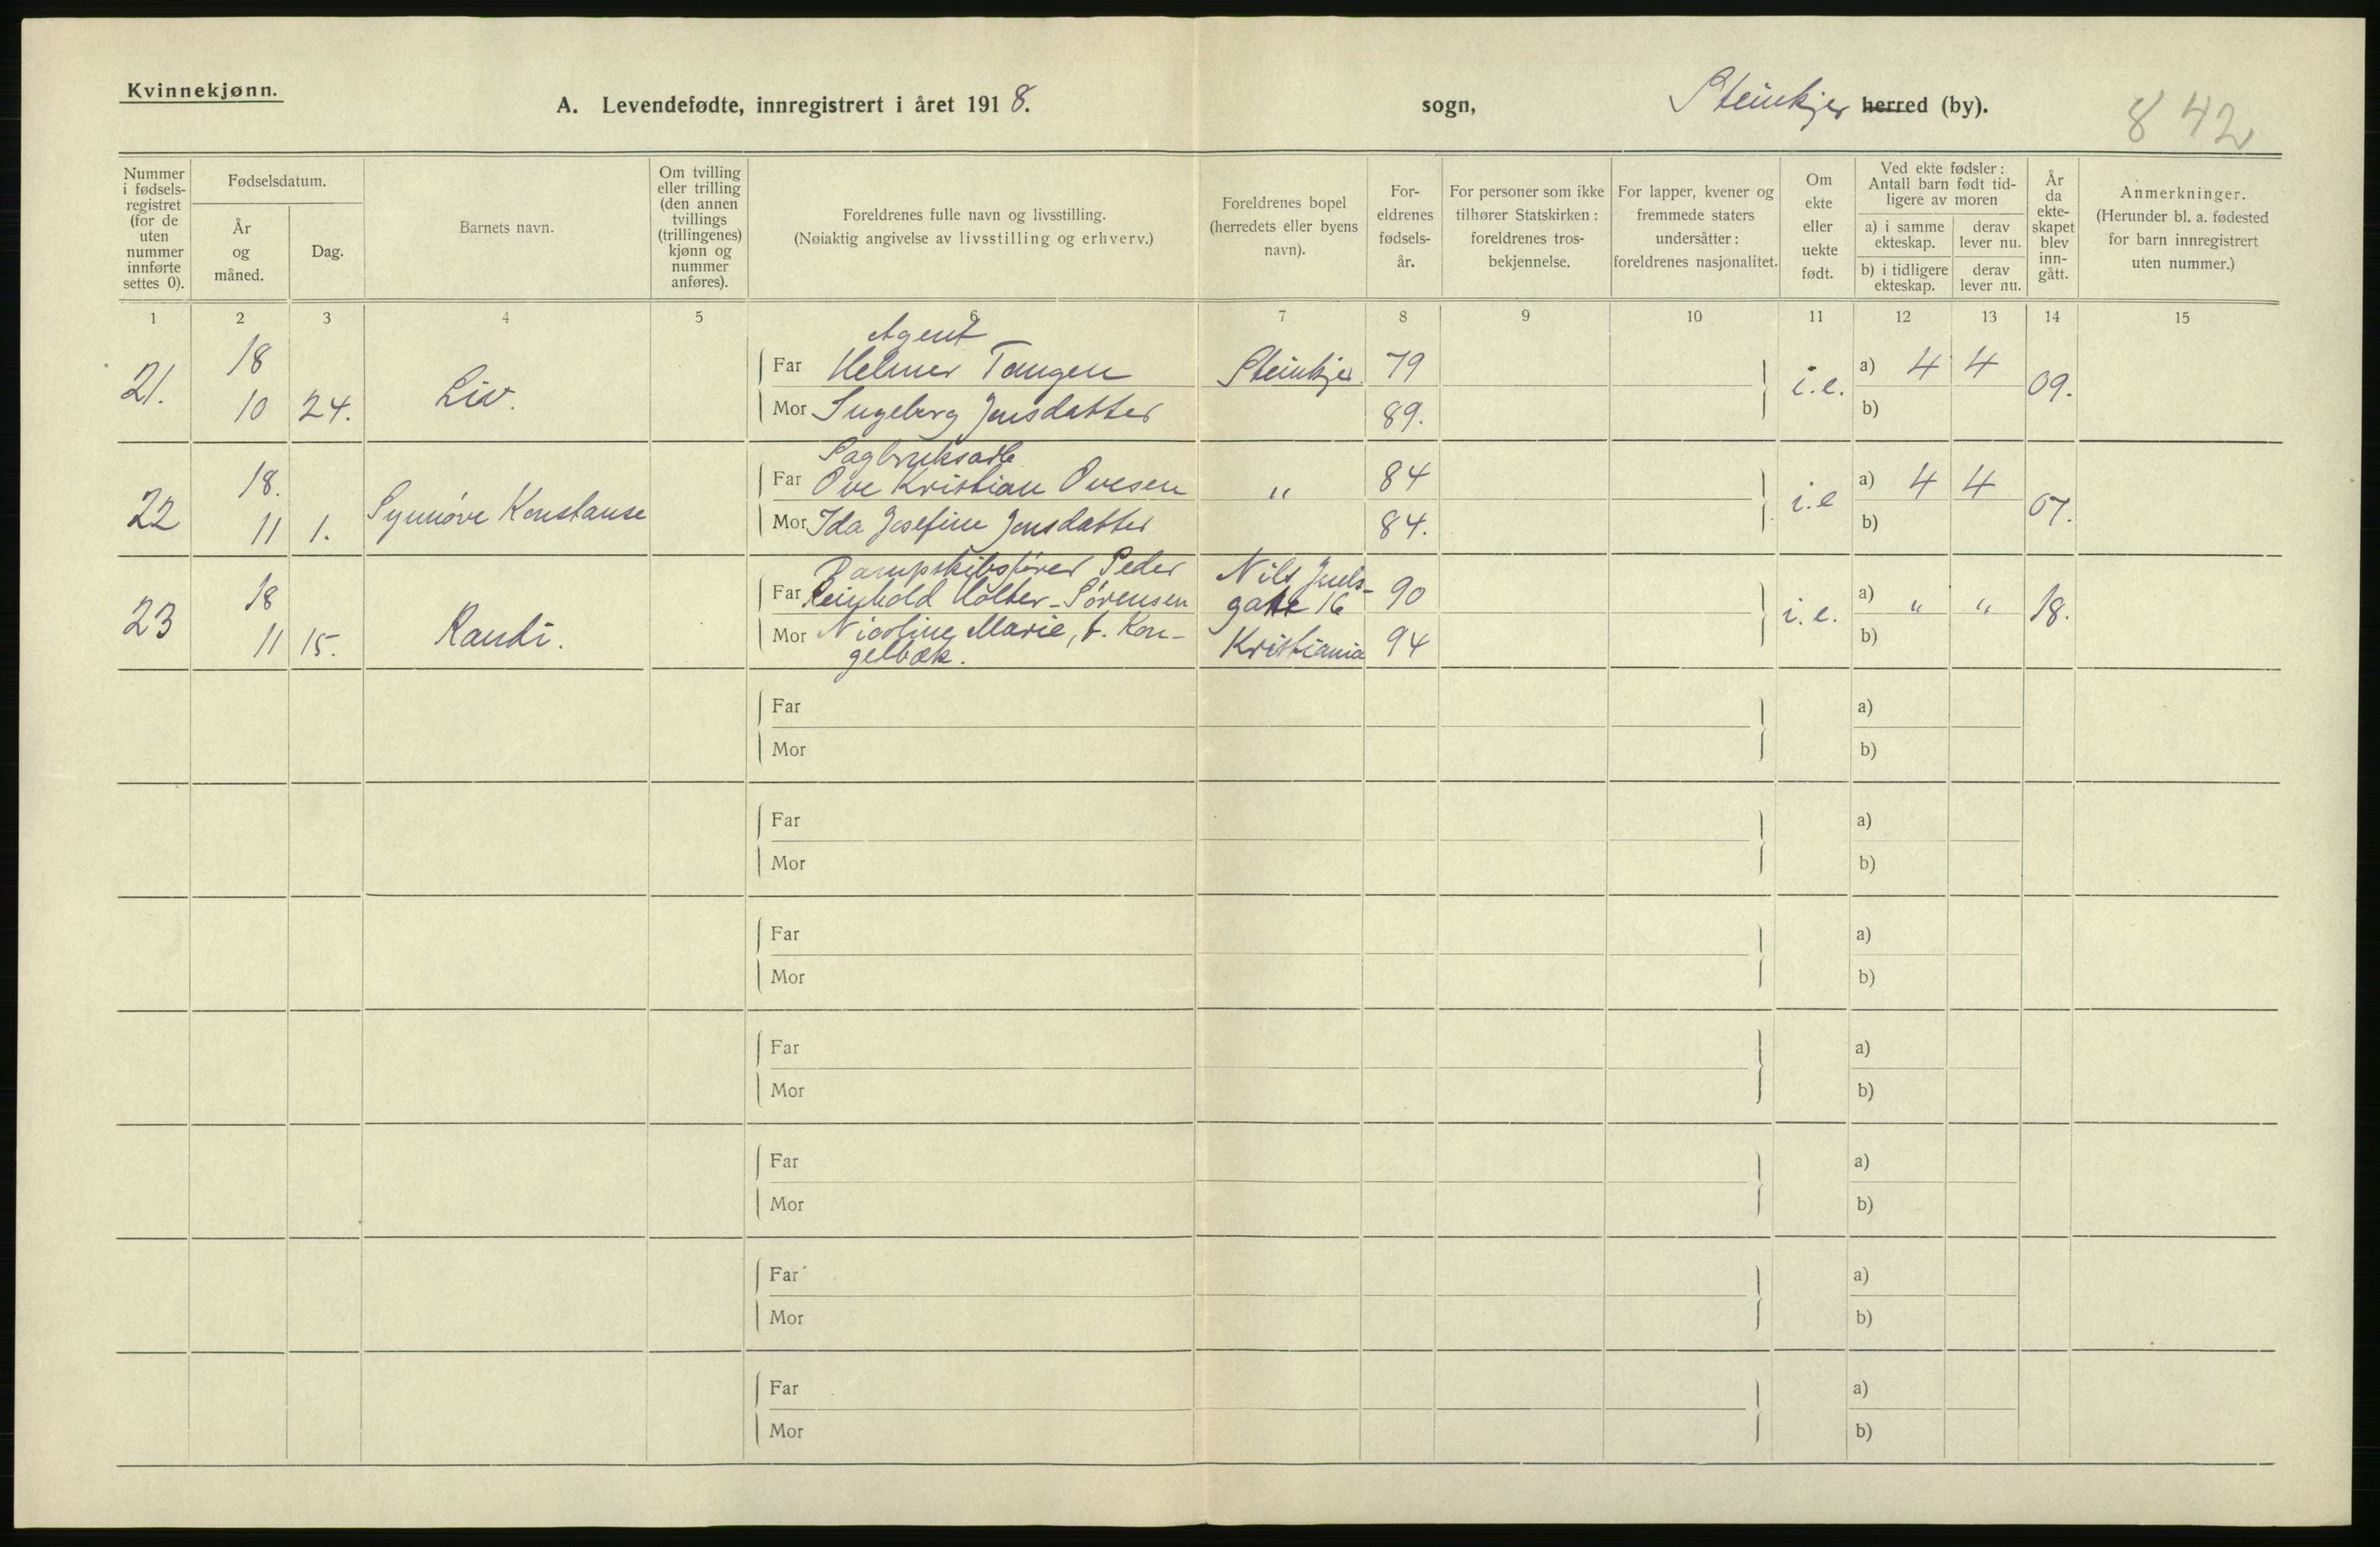 Kvinnekjønn.
A. Levendefødte, innregistrert i året 1918.
sogn,
Steinkjer herred (by).
842
Nummer i fødsels-registret (for de uten nummer innførte settes 0).
Fødselsdatum.
År og måned.
Dag.
Barnets navn.
Om tvilling eller trilling (den annen tvillings (trillingenes) kjønn og nummer anføres).
Foreldrenes fulle navn og livsstilling.
(Nøiaktig angivelse av livsstilling og erhverv.)
Foreldrenes bopel (herredets eller byens navn).
For-eldrenes fødsels-år.
For personer som ikke tilhører Statskirken: foreldrenes tros-bekjennelse.
For lapper, kvener og fremmede staters undersåtter: foreldrenes nasjonalitet.
Om ekte eller uekte født.
Ved ekte fødsler: Antall barn født tid-ligere av moren
a) i samme ekteskap.
derav lever nu.
b) i tidligere ekteskap.
derav lever nu.
År da ekte-skapet blev inn-gått.
Anmerkninger.
(Herunder bl. a. fødested for barn innregistrert uten nummer.)
1 2 3 4 5 6 7 8 9 10 11 12 13 14 15
Agent
21. 18 Far Helmer Tangen Steinkjer 79 a) 4 4
10 24. Liv. Mor Ingeborg Jensdatter 89. i.e. b) 09.
Sagbruksarb.
22 18. Far Ove Kristian Ovesen " 84 a) 4 4
11 1. Synnøve Konstanse Mor Ida Josefine Jensdatter 84. i.e b) 07.
Dampskibsfører Peder Nils Juels-
23 18 Far Reinhold Holter-Sørensen gate 16 90 a) " "
11 15. Randi. Mor Nicoline Marie, f. Kon- Kristiania 94 i.e. b) 18.
gelbæk.
Far a)
Mor b)
Far a)
Mor b)
Far a)
Mor b)
Far a)
Mor b)
Far a)
Mor b)
Far a)
Mor b)
Far a)
Mor b)